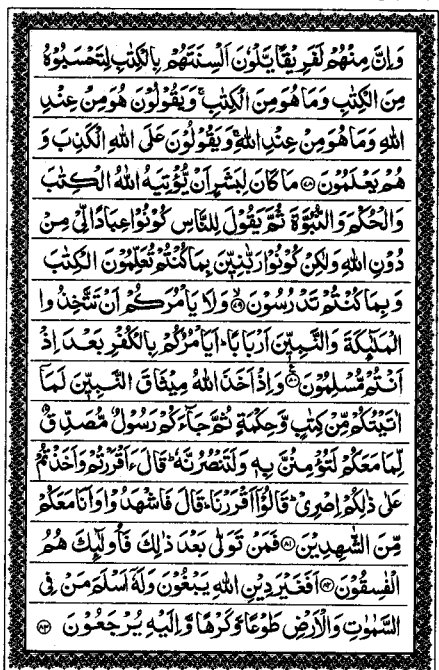 وَاِنَّ مِنْهُمْ لَفَرِيْقًا يَّلْوٗنَ اَلْسِنَتَهُمْ بِالْكِتٰبِ لِتَحْسَبُوْهُ
مِنَ الْكِتٰبِ وَمَا هُوَ مِنَ الْكِتٰبِ ۚ وَيَقُوْلُوْنَ هُوَ مِنْ عِنْدِ
اللهِ وَمَا هُوَ مِنْ عِنْدِ اللهِ ۚ وَيَقُوْلُوْنَ عَلَى اللهِ الْكَذِبَ وَ
هُمْ يَعْلَمُوْنَ ﴿۷۸﴾ مَا كَانَ لِبَشَرٍ اَنْ يُّؤْتِيَهُ اللهُ الْكِتٰبَ
وَالْحُكْمَ وَالنُّبُوَّةَ ثُمَّ يَقُوْلَ لِلنَّاسِ كُوْنُوْا عِبَادًا لِّيْ مِنْ
دُوْنِ اللهِ وَلٰكِنْ كُوْنُوْا رَبّٰنِيّٖنَ بِمَا كُنْتُمْ تُعَلِّمُوْنَ الْكِتٰبَ
وَبِمَا كُنْتُمْ تَدْرُسُوْنَ ﴿۷۹﴾ وَلَا يَاْمُرَكُمْ اَنْ تَتَّخِذُوا
الْمَلٰٓئِكَةَ وَالنَّبِيّٖنَ اَرْبَابًا ؕ اَيَاْمُرُكُمْ بِالْكُفْرِ بَعْدَ اِذْ
اَنْتُمْ مُّسْلِمُوْنَ ﴿۸۰﴾ وَاِذْ اَخَذَ اللهُ مِيْثَاقَ النَّبِيّٖنَ لَمَاۤ
اٰتَيْتُكُمْ مِّنْ كِتٰبٍ وَّحِكْمَةٍ ثُمَّ جَآءَكُمْ رَسُوْلٌ مُّصَدِّقٌ
لِّمَا مَعَكُمْ لَتُؤْمِنُنَّ بِهٖ وَلَتَنْصُرُنَّهٗ ؕ قَالَ ءَاَقْرَرْتُمْ وَاَخَذْتُمْ
عَلٰى ذٰلِكُمْ اِصْرِيْ ؕ قَالُوْۤا اَقْرَرْنَا ؕ قَالَ فَاشْهَدُوْا وَاَنَا مَعَكُمْ
مِّنَ الشّٰهِدِيْنَ ﴿۸۱﴾ فَمَنْ تَوَلّٰى بَعْدَ ذٰلِكَ فَاُولٰٓئِكَ هُمُ
الْفٰسِقُوْنَ ﴿۸۲﴾ اَفَغَيْرَ دِيْنِ اللهِ يَبْغُوْنَ وَلَهٗۤ اَسْلَمَ مَنْ فِى
السَّمٰوٰتِ وَالْاَرْضِ طَوْعًا وَّكَرْهًا وَّاِلَيْهِ يُرْجَعُوْنَ ﴿۸۳﴾